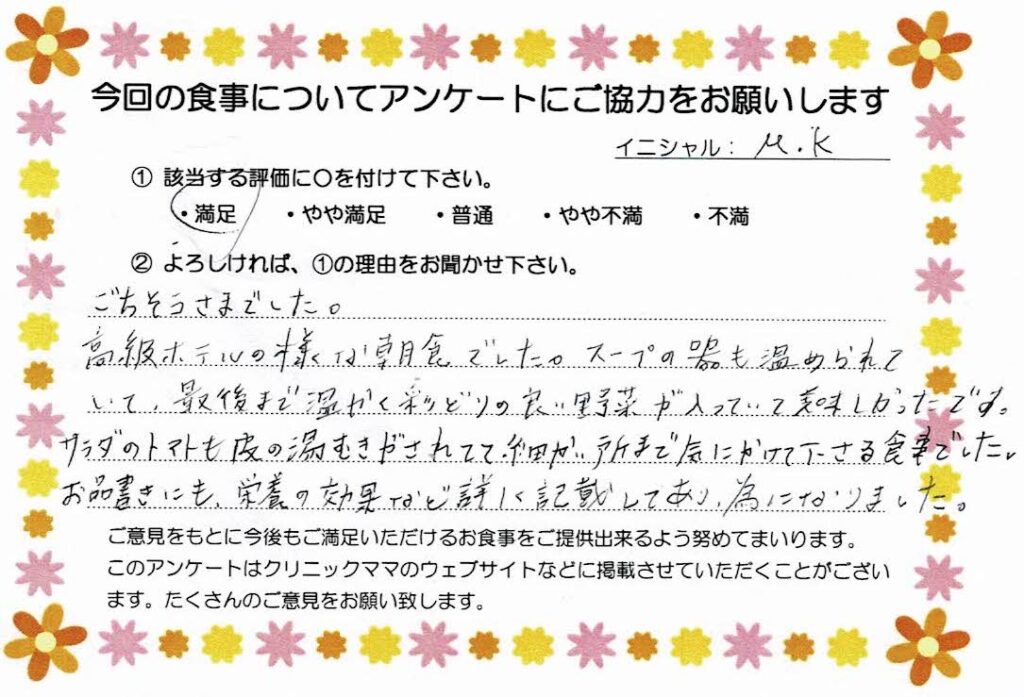 今回の食事についてアンケートにご協力をお願いします
イニシャル： M.K
① 該当する評価に〇を付けて下さい。
・満足 ・やや満足 ・普通 ・やや不満 ・不満
② よろしければ、①の理由をお聞かせ下さい。
ごちそうさまでした。
高級ホテルの様な朝食でした。スープの器も温められて
いて、最後まで温かく彩どりの良い野菜が入っていて美味しかったです。
サラダのトマトも皮の湯むきがされてて細かい所まで気にかけて下さる食事でした。
お品書きにも、栄養の効果など詳しく記載してあり、為になりました。
ご意見をもとに今後もご満足いただけるお食事をご提供出来るよう努めてまいります。
このアンケートはクリニックママのウェブサイトなどに掲載させていただくことがござい
ます。たくさんのご意見をお願い致します。